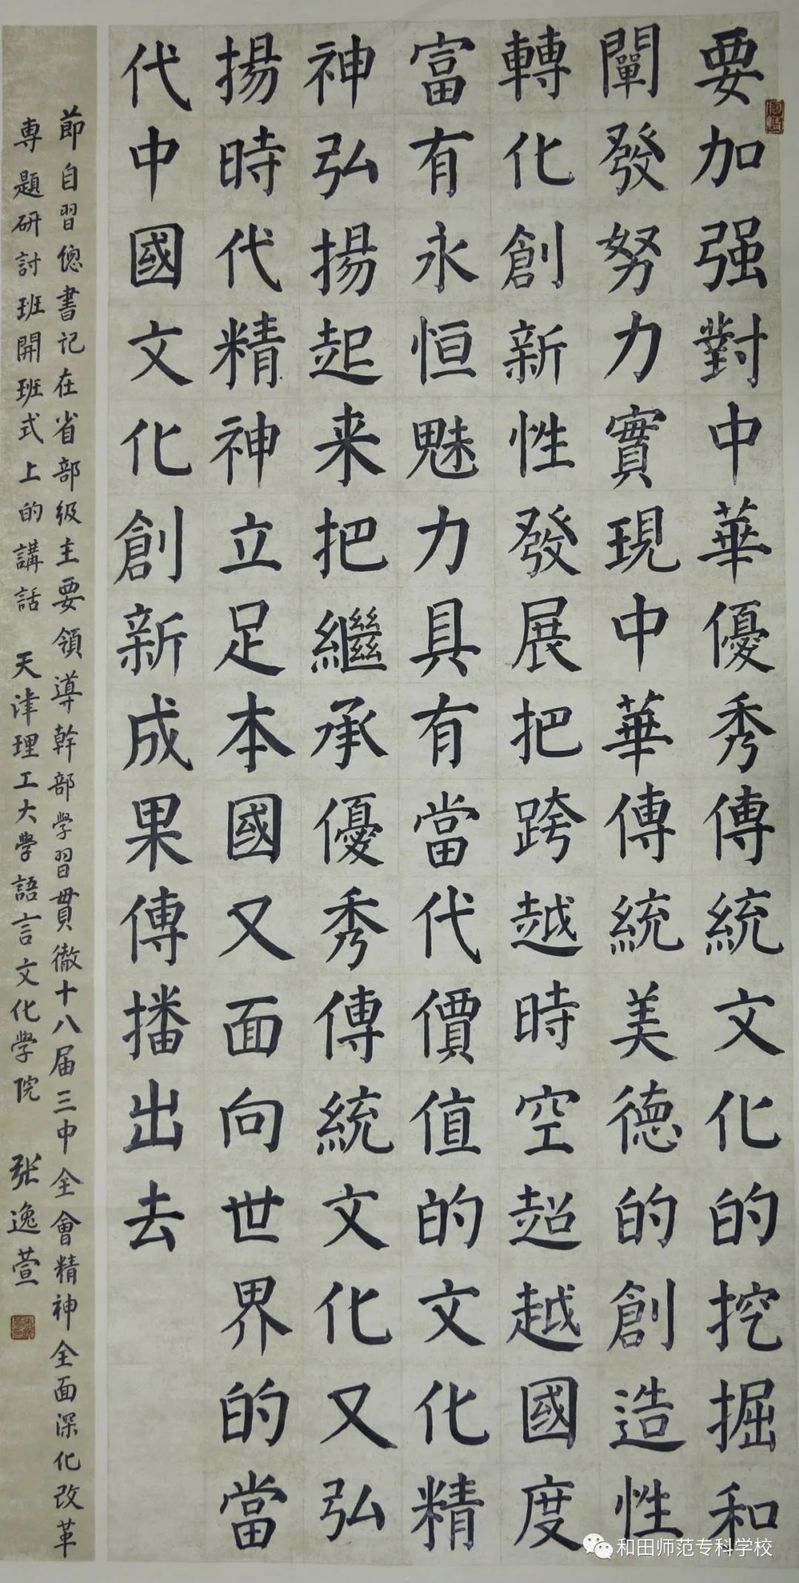 要加强對中華優秀傳統文化的挖掘和
闡發努力實現中華傳統美德的創造性
轉化創新性發展把跨越時空超越國度
富有永恒魅力具有當代價值的文化精
神弘揚起来把繼承優秀傳統文化又弘
揚時代精神立足本國又面向世界的當
代中國文化創新成果傳播出去
節自習總書记在省部级主要領導幹部学習貫徹十八届三中全會精神全面深化改革
専題研討班開班式上的講話 天津理工大學語言文化學院 张逸萱
和田师范专科学校